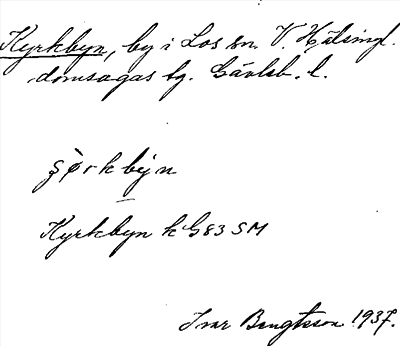 Kyrkbyn, by i Los sn. V. Hälsingl.
domsagas tg. Gävleb. l.
şørkbỳn
Kyrkbyn k G83 SM
Ivar Bengtsson 1937.